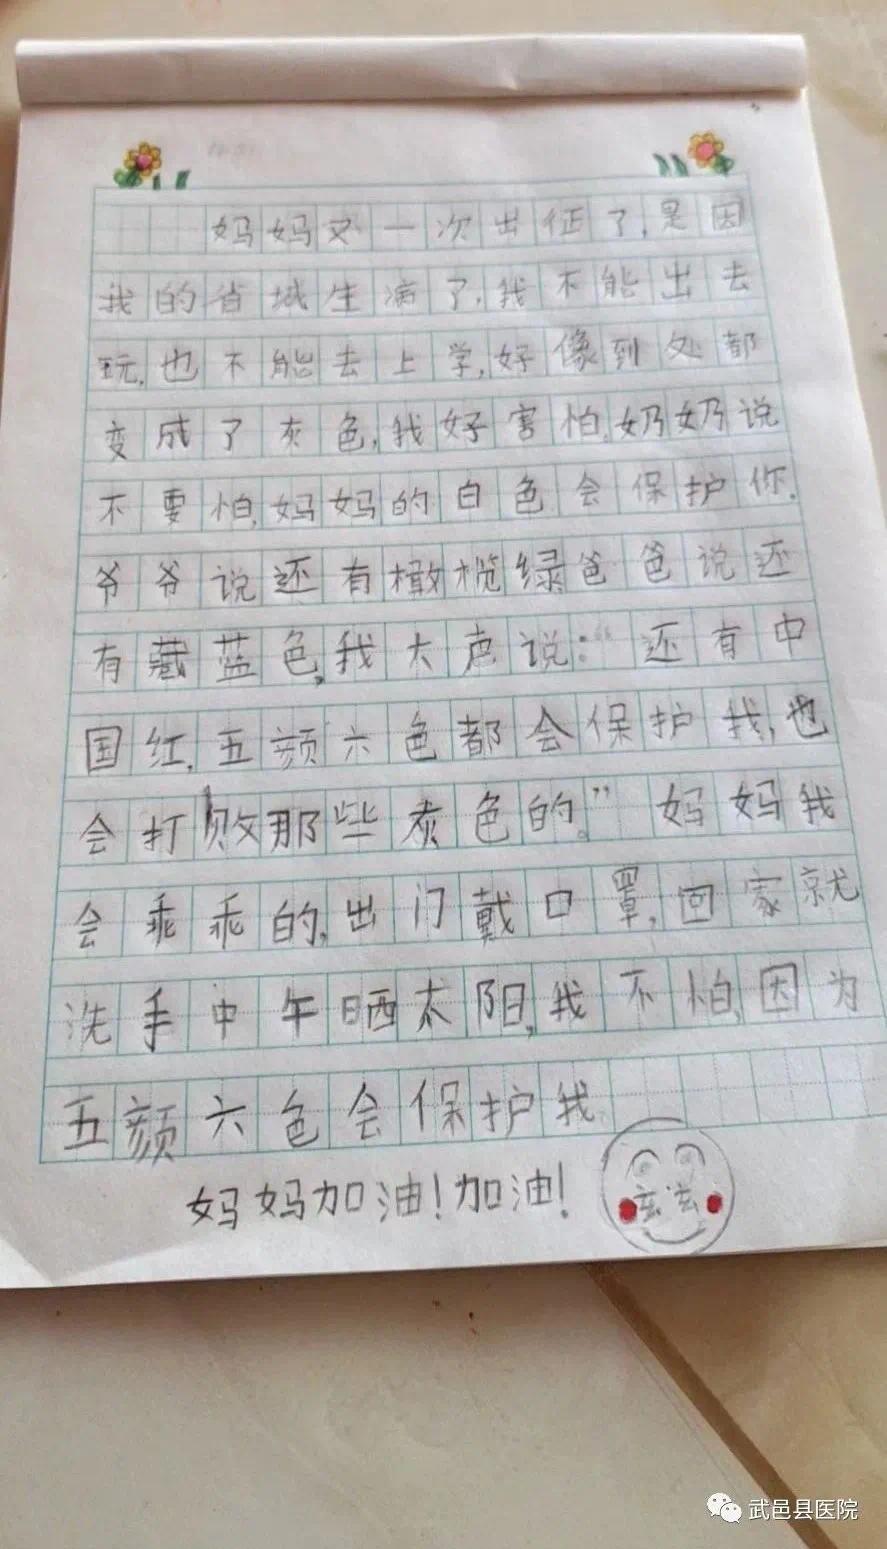 妈妈又一次出征了,是因
我的省城生病了,我不能出去
玩,也不能去上学,好像到处都
变成了灰色,我好害怕,奶奶说
不要怕,妈妈的白色会保护你.
爷爷说还有橄榄绿,爸爸说还
有藏蓝色,我大声说:“还有中
国红,五颜六色都会保护我,也
会打败那些灰色的。”妈妈我
会乖乖的,出门戴口罩,回家就
洗手中午晒太阳,我不怕,因为
五颜六色会保护我
妈妈加油!加油!
武邑县医院